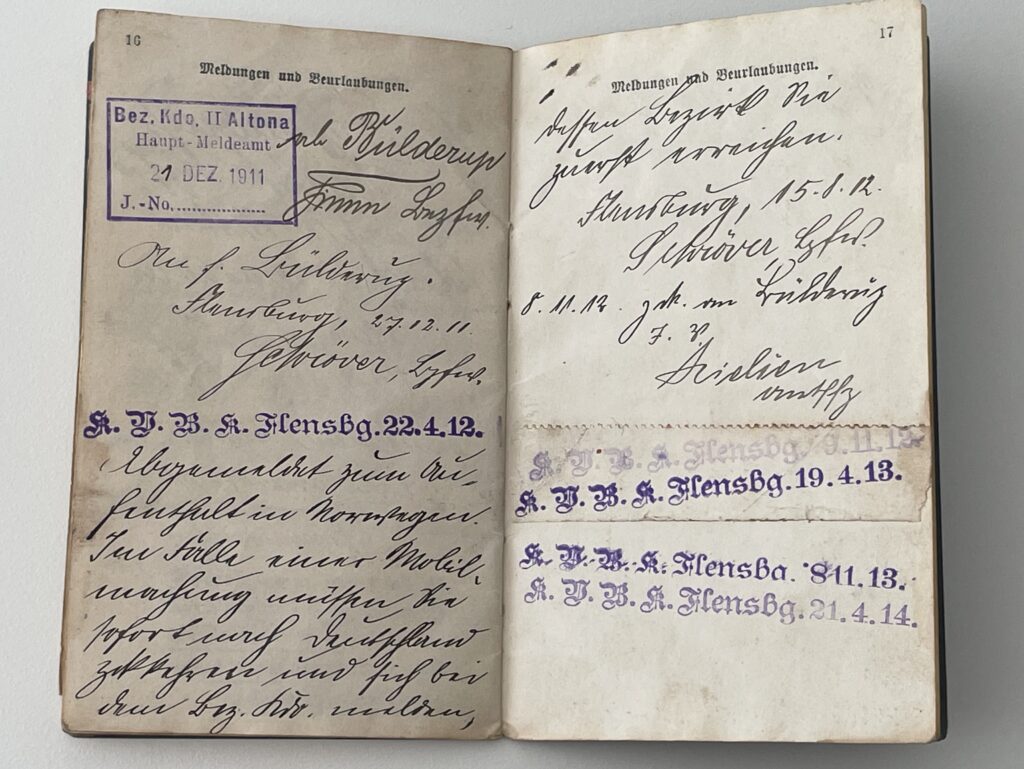 16
Meldungen und Beurlaubungen.
Bez. Kdo, II Altona
Haupt-Meldeamt
21 DEZ. 1911
J.-No.
ab Bülderup
Timm Bezfw.
An f. Bülderup.
Flensburg, 27.12.11.
Schröver, Bzfw.
K. V. B. K. Flensbg. 22.4.12.
Abgemeldet zum Au-
fenthalt in Norwegen.
Im Fälle einer Mobil-
machung müssen Sie
sofort nach Deutschland
zrkkehren und sich bei
dem Bez. Kdo. melden,
17
Meldungen und Beurlaubungen.
dessen Bezirk Sie
zuerst erreichen.
Flensburg, 15.8.12.
Schröver, Bzfw.
8.11.12. zrk. an Bülderup
J. V.
K. V. B. K. Flensbg. 9.11.12
K. V. B. K. Flensbg. 19.4.13.
K. V. B. K. Flensbg. 8 11.13.
K. V. B. K. Flensbg. 21.4.14.